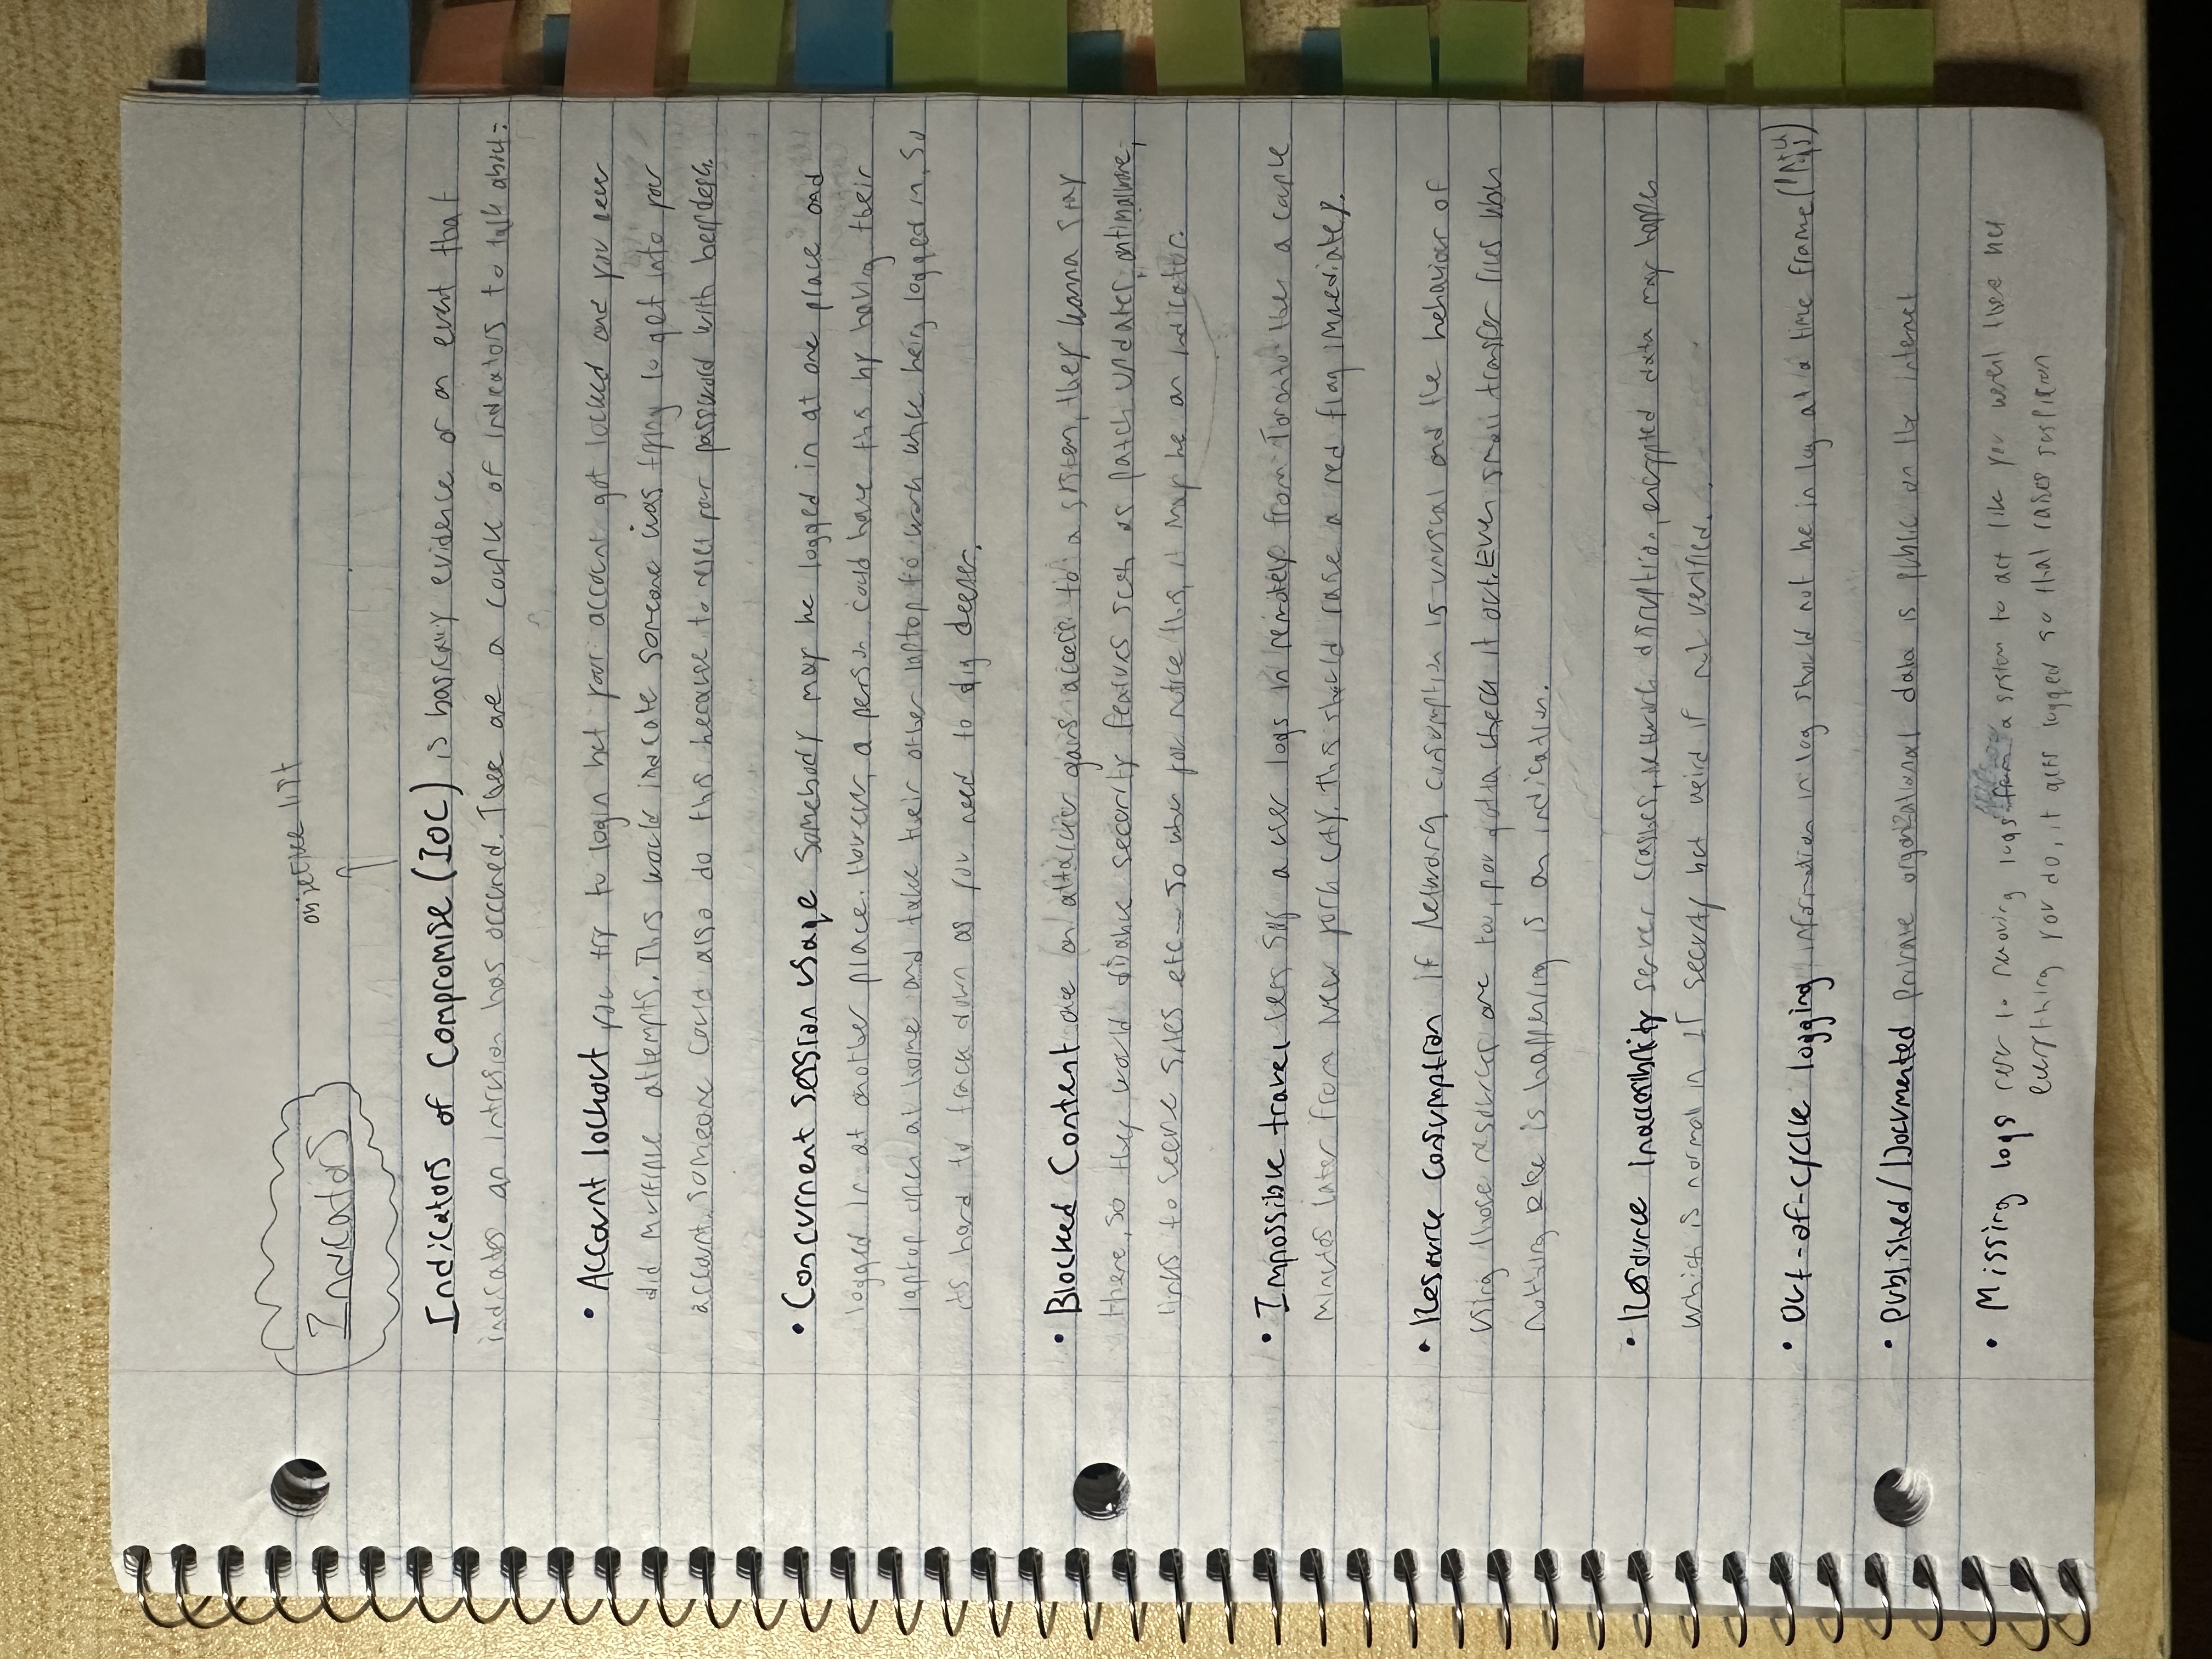 Indicators
objective list
Indicators of Compromise (IOC) is basically evidence or an event that
indicates an intrusion has occured. There are a couple of indicators to talk about:
• Account lockout you try to login but your account got locked and you never
did multiple attempts. This would indicate someone was trying to get into your
account. Someone could also do this because to reset your password with helpdesk.
• Concurrent session usage Somebody may be logged in at one place and
logged in at another place. However, a person could have this by having their
laptop open at home and take their other laptop to work while being logged in. So
its hard to track down as you need to dig deeper.
• Blocked Content once an attacker gains access to a system, they wanna stay
there, so they would disable security features such as patch updates, antimalware,
links to secure sites etc... So when you notice this, it may be an indicator.
• Impossible travel lets say a user logs in remotely from Toronto then a couple
minutes later from New York City. This should raise a red flag immediately.
• Resource consumption if Network consumption is unusual and the behaviour of
using those resources are too, you gotta check it out. Even small transfer files when
nothing else is happening is an indication.
• Resource Inaccessibility server crashes, network disruption, encrypted data may happen
which is normal in IT security but weird if not verified.
• Out-of-cycle logging information in log should not be in log at a time frame
• Published/Documented private organizational data is public on the internet
• Missing logs refer to removing logs from a system to act like you weren't there but
everything you do, it gets logged so that raises suspicion